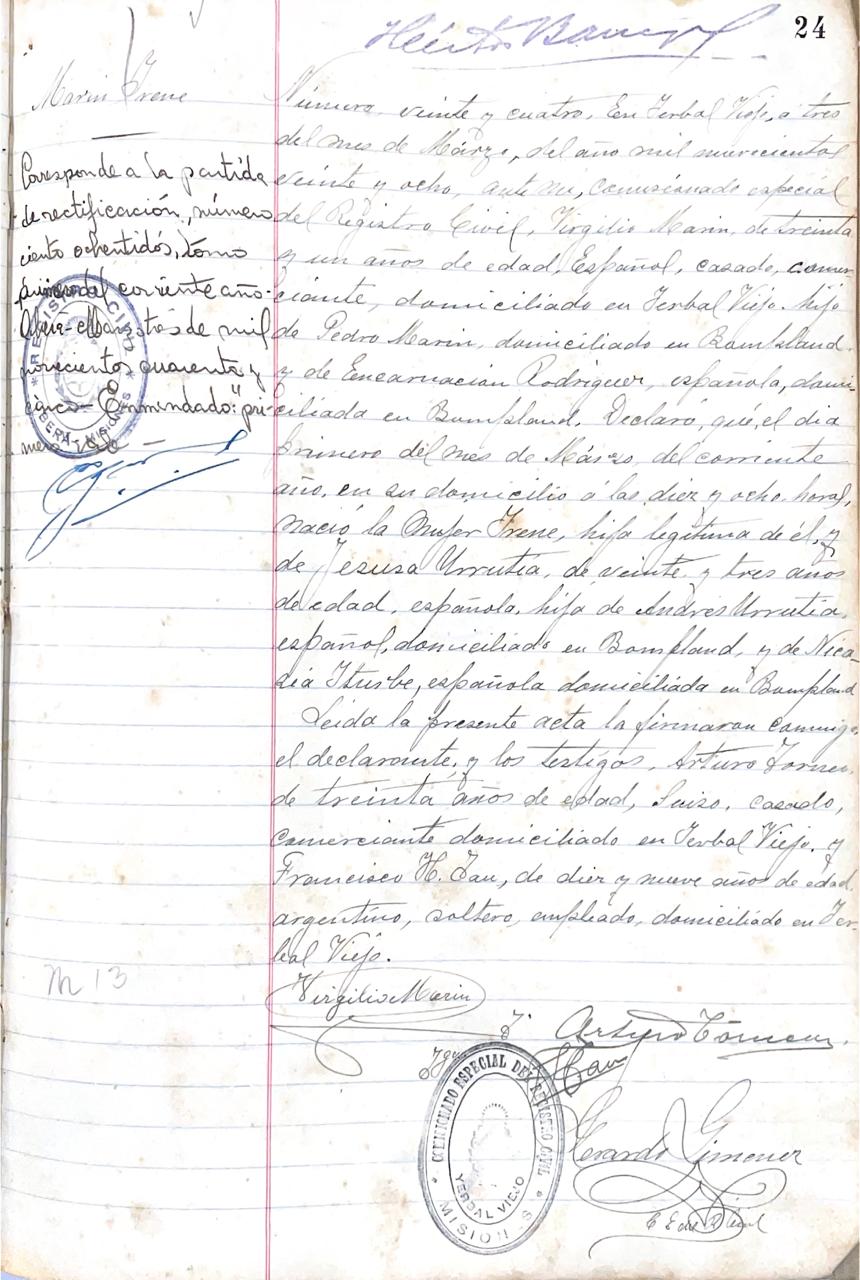 24
Marin Irene
Corresponde a la partida
de rectificación, número
ciento ochentidós, tomo
del corriente año.
tres de mil
novecientos cuarenta y
Enmendado: "pri-
mero
REGISTRO CIVIL
MISIONES
M 13
Número, veinte y cuatro. En Yerbal Viejo, a tres
del mes de Márzo, del año mil nuevecientos
veinte y ocho, ante mi, comisionado especial
del Registro Civil, Virgilio Marin, de treinta
y un años de edad, Español, casado, comer-
ciante, domiciliado en Yerbal Viejo. hijo
de Pedro Marin, domiciliado en Bompland.
y de Encarnación Rodriguez, española, domi-
ciliada en Bompland. Declaró, qué, el dia
primero del mes de Márzo, del corriente
año, en su domicilio á las diez y ocho, horas,
nació la mujer Irene, hija legitima de él, y
de Jesusa Urrutia, de veinte y tres años
de edad, española, hija de Andrés Urrutia,
español, domiciliado en Bompland, y de Nica-
sia Iturbe, española domiciliada en Bompland
Leida la presente acta la firmaron conmigo,
el declarante, y los testigos, Arturo
de treinta años de edad, Suizo, casado,
comerciante domiciliado en Yerbal Viejo. y
Francisco H. Tau, de diez y nueve años de edad,
argentino, soltero, empleado, domiciliado en Yer-
bal Viejo.
Virgilio Marin
Arturo
Tau
COMISIONADO ESPECIAL DEL REGISTRO CIVIL
YERBAL VIEJO
MISIONES
Gerardo Gimenez